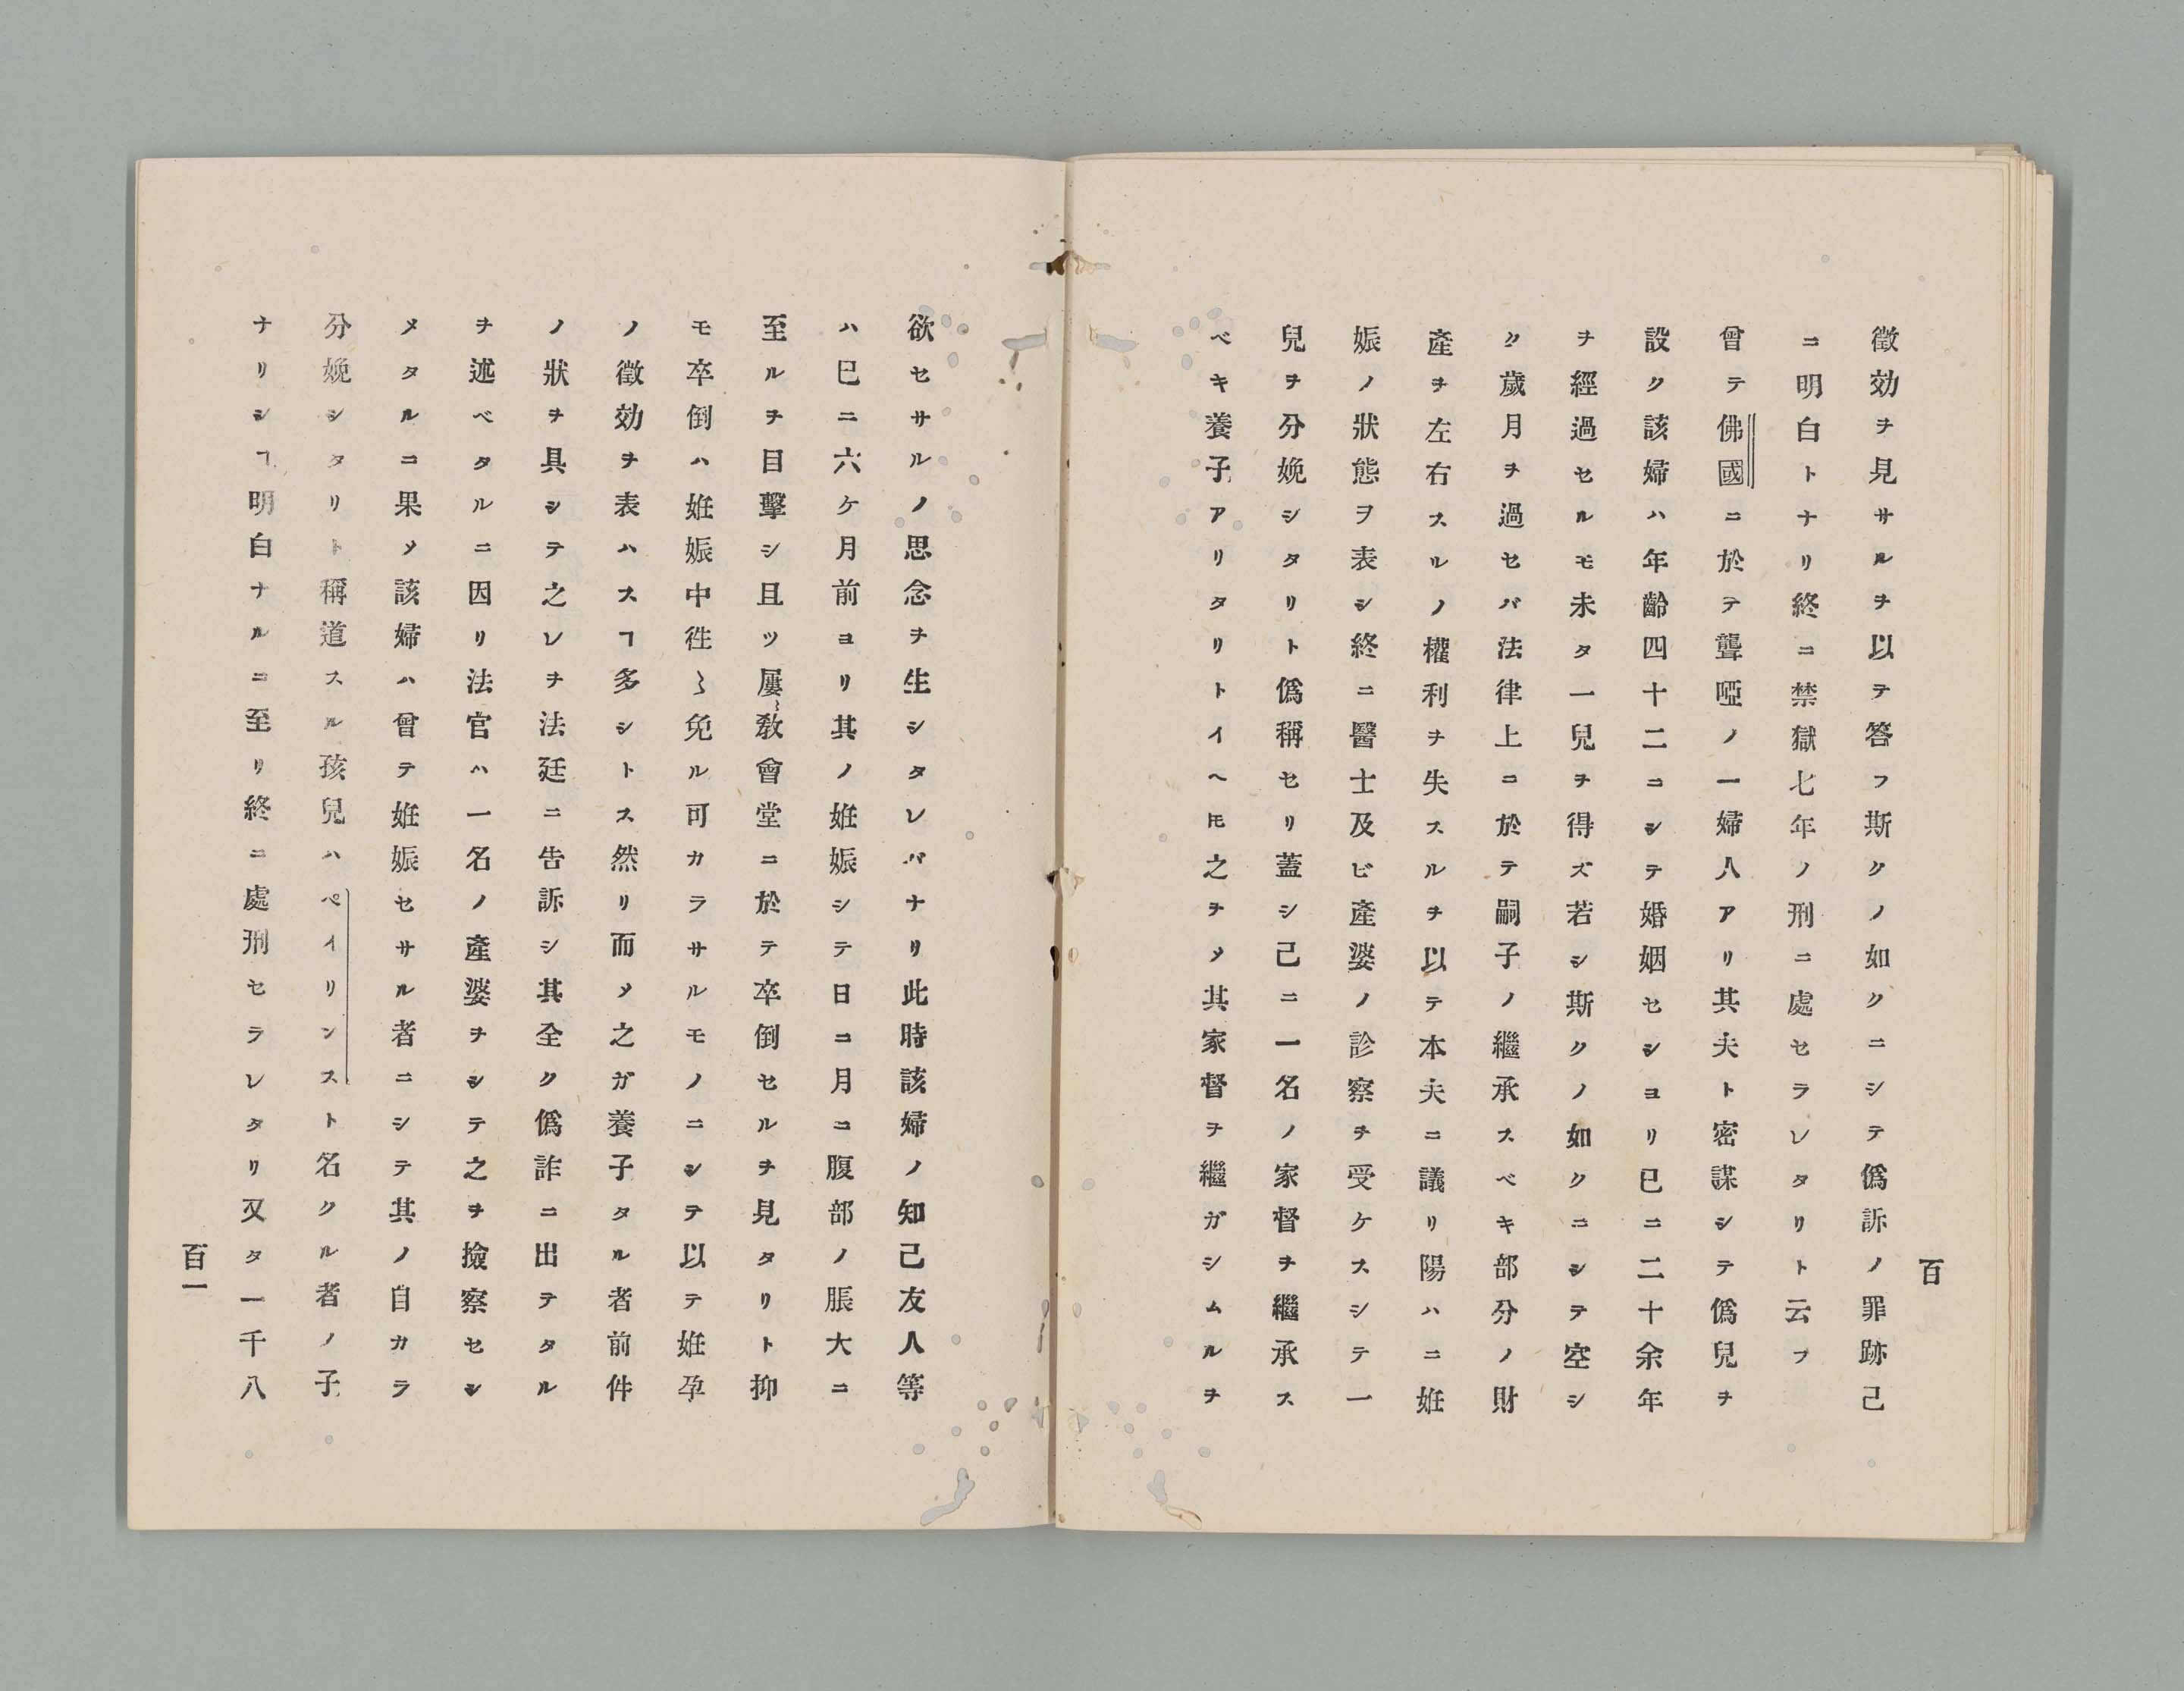 百
徵効ヲ見サルヲ以テ答フ斯クノ如クニシテ僞訴ノ罪跡己
ニ明白トナリ終ニ禁獄七年ノ刑ニ處セラレタリト云フ
曾テ佛國ニ於テ聾啞ノ一婦人アリ其夫ト密謀シテ僞兒ヲ
設ク該婦ハ年齡四十二ニシテ婚姻セシヨリ巳ニ二十余年
ヲ經過セルモ未タ一兒ヲ得ズ若シ斯クノ如クニシテ空シ
ク歲月ヲ過セバ法律上ニ於テ嗣子ノ繼承スベキ部分ノ財
產ヲ左右スルノ權利ヲ失スルヲ以テ本夫ニ議リ陽ハニ姙
娠ノ狀態ヲ表シ終ニ醫士及ビ產婆ノ診察ヲ受ケスシテ一
兒ヲ分娩シタリト僞稱セリ蓋シ己ニ一名ノ家督ヲ繼承ス
ベキ養子アリタリトイヘ𪜈之ヲ〆其家督ヲ繼ガシムルヲ
欲セサルノ思念ヲ生シタレバナリ此時該婦ノ知己友人等
ハ巳ニ六ケ月前ヨリ其ノ姙娠シテ日ニ月ニ腹部ノ脹大ニ
至ルヲ目擊シ且ツ屢〻敎會堂ニ於テ卒倒セルヲ見タリト抑
モ卒倒ハ姙娠中徃〻免ル可カラサルモノニシテ以テ姙孕
ノ徵効ヲ表ハスヿ多シトス然リ而〆之ガ養子タル者前件
ノ狀ヲ具シテ之レヲ法廷ニ告訴シ其全ク僞詐ニ出テタル
ヲ述ベタルニ因リ法官ハ一名ノ產婆ヲシテ之ヲ撿察セシ
メタルニ果〆該婦ハ曾テ姙娠セサル者ニシテ其ノ自カラ
分娩シタリト稱道スル孩兒ハペイリンスト名クル者ノ子
ナリシヿ明白ナルニ至リ終ニ處刑セラレタリ又タ一千八
百一